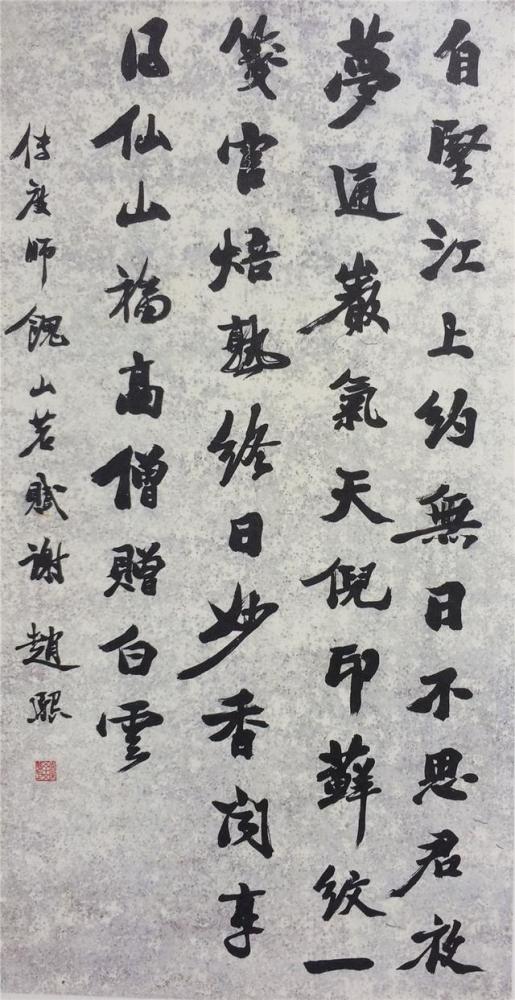 自堅江上約無日不思君放
夢通巖氣天倪印蘚紋一
箋宮焙熟終日妙香聞享
仙山福高僧贈白雲
傳度師餽山茗賦謝 趙熙